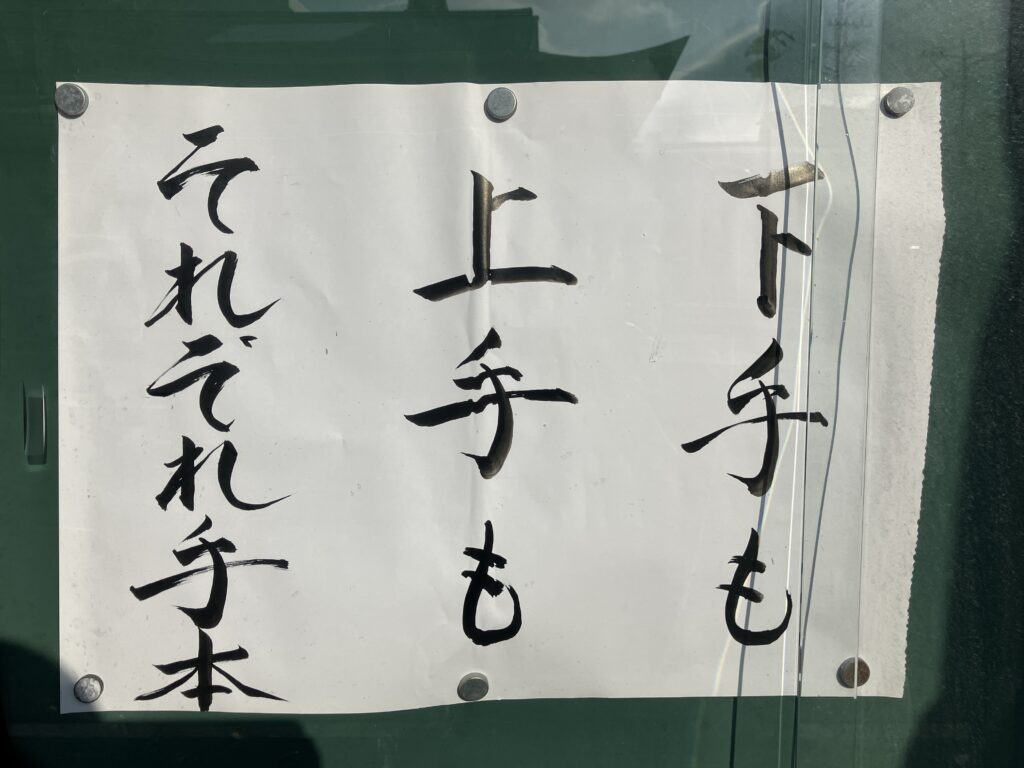 下手も
上手も
それぞれ手本